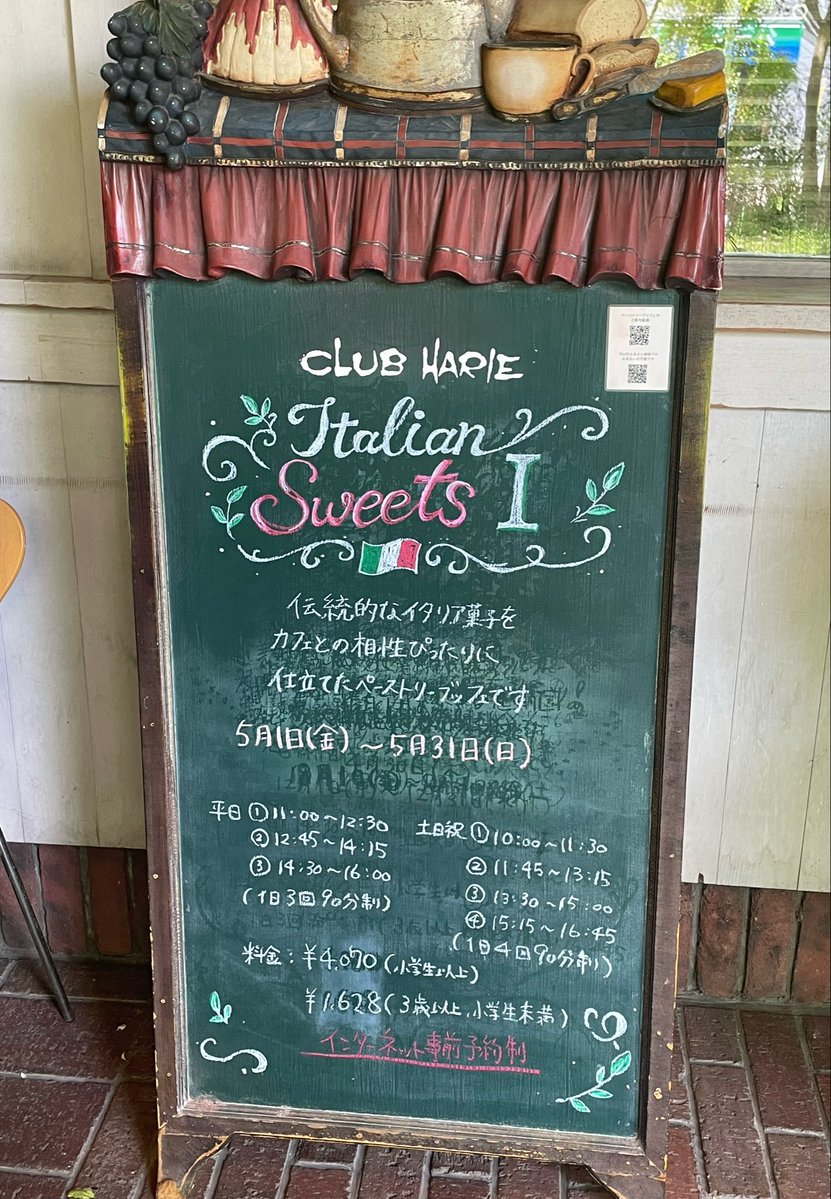 CLUB HARIE
Italian
Sweets I
伝統的なイタリア菓子を
カフェとの相性ぴったりに
仕立てたペーストリーブッフェです
5月1日(金)～5月31日(日)
平日 ① 11:00～12:30
② 12:45～14:15
③ 14:30～16:00
(1日3回90分制)
土日祝 ① 10:00～11:30
② 11:45～13:15
③ 13:30～15:00
④ 15:15～16:45
(1日4回90分制)
料金:¥4,070(小学生以上)
¥1,628(3歳以上、小学生未満)
インターネット事前予約制